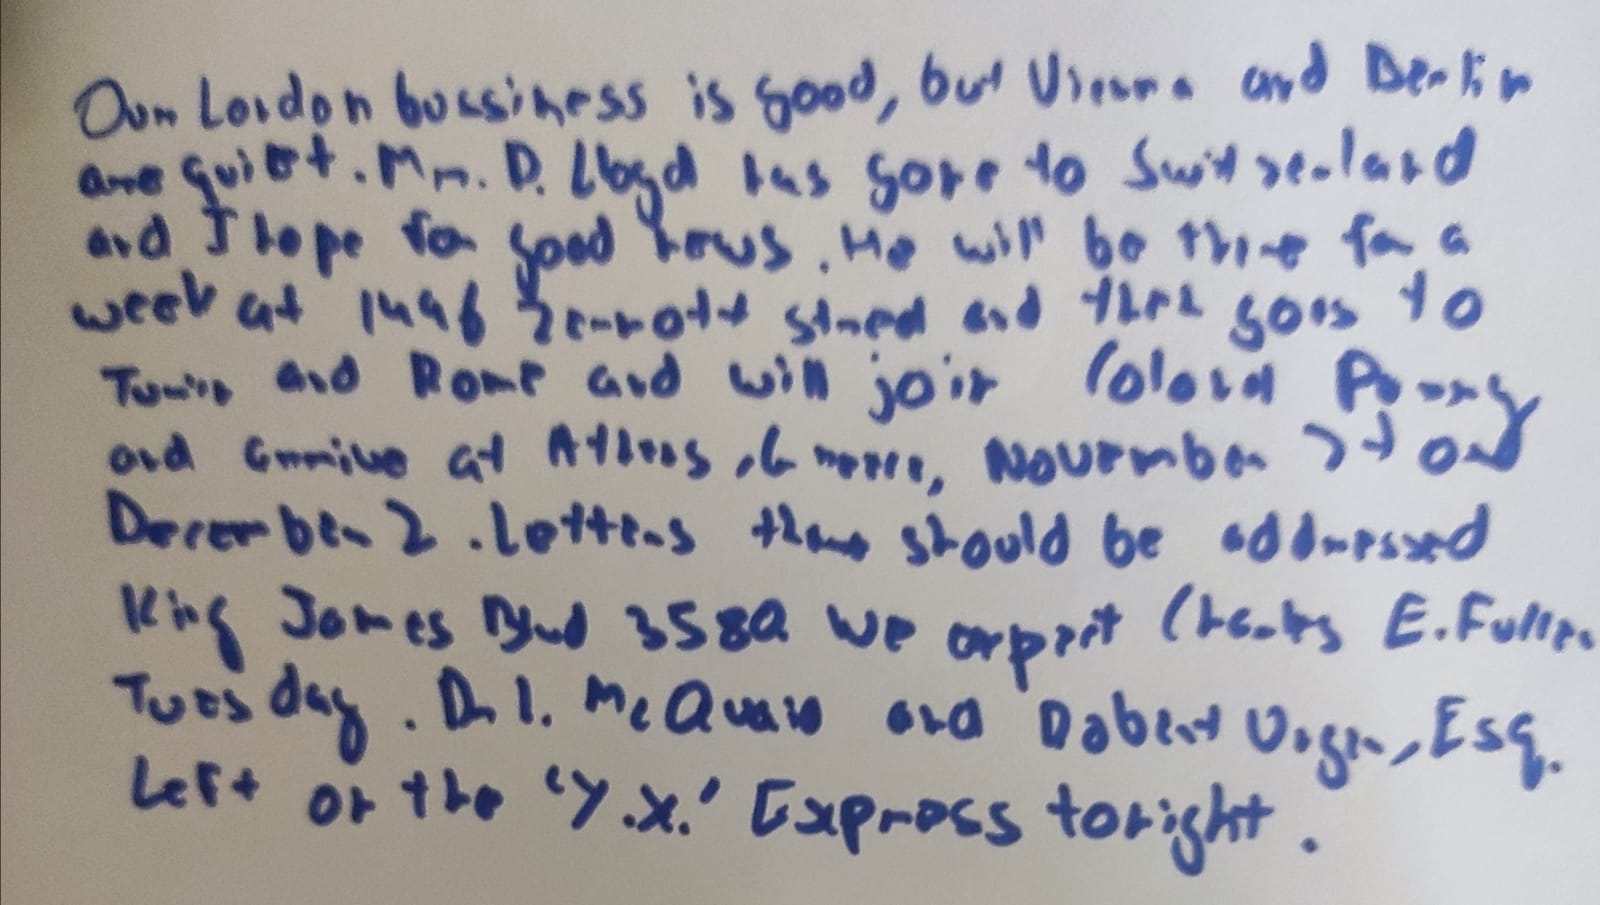 Our London bussiness is good, but Vienna and Berlin
are quiet. Mr. D. Lloyd has gone to Switzerland
and I hope for good news. He will be there for a
week at 1496 Zermott street and then goes to
Turin and Rome and will join Colonel Parry
and arrive at Athens, Greece, November 27 or
December 2. Letters there should be addressed
King James Blvd 3580. We expect Charles E. Fuller
Tuesday. Dr. L. McQuaid and Robert Unger, Esq.
Left on the 'Y.X.' Express tonight.